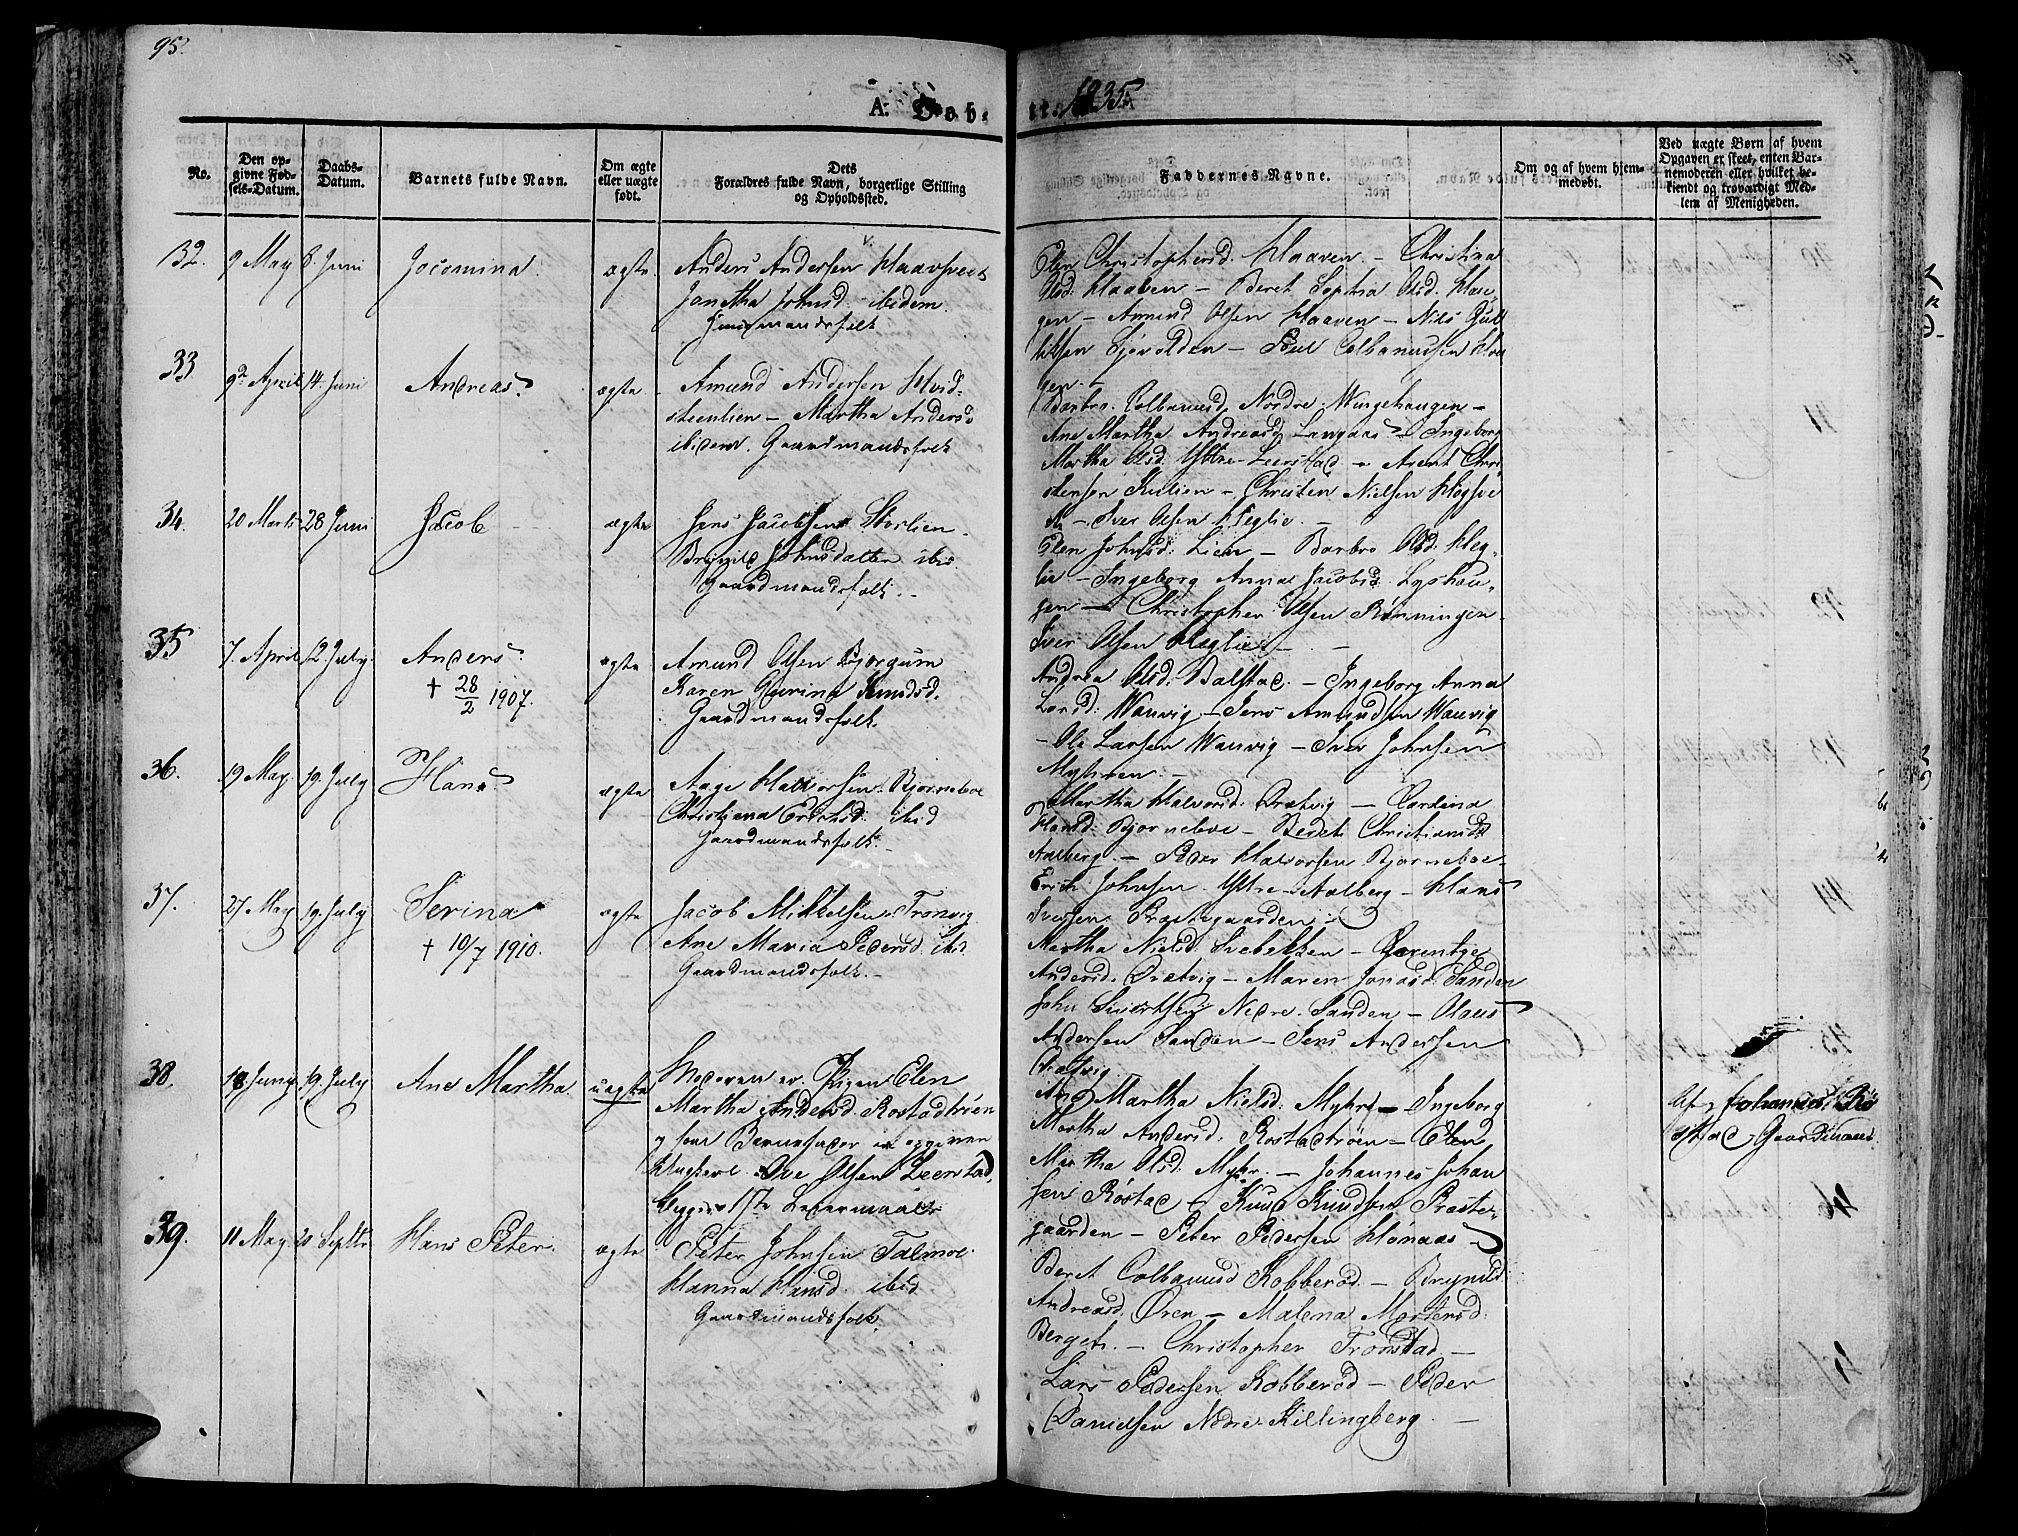 95.
A: Dob.
1835
No.
Den op-
givne Fød-
sels-Datum.
Daabs-
Datum.
Barnets fulde Navn.
Om ægte
eller uægte
født.
Dets
Forældres fulde Navn, borgerlige Stilling
og Opholdssted.
Faddernes Navne.
Om og af hvem hjem-
medøbt.
Ved uægte Børn af hvem
Opgaven er skeet, enten Bar-
nemoderen eller hvilket be-
kiendt og troværdigt Med-
lem af Menigheden.
32. 9 May 8 Juni Jocomina. ægte
Anders Andersen
Janetha Johnsd. ibidem.
mandsfolk
Elen Christophersd. Haaven – Christina
Olsd: Haaven – Beret Sophia Olsd. Hau-
gen – Amund Olsen Haaven – Nils Gul-
liksen Sjøvolden – Poul Colbanussen Hau
gen. –
33 9de April 14. Juni Andreas. ægte
Amund Andersen Hvid-
steenlien – Martha Anders.
ibidem. Gaardmandsfolk
Barbro. Colbanusd. Nordre
Ane Martha Andreasd. Langaas – Ingeborg
Martha Olsd. Yttre-Leerstad – Arent Chri
stensen – Christen Nielsen
– Iver Olsen Heglie. –
34. 20 Marts 28 Juni Jacob ægte
Jens Jacobsen Storlien
Brynild Johnsdatter ibid.
Gaardmandsfolk. –
Elen Johnsd: Lien – Barbro Olsd: Heg-
lie – Ingeborg Anna Jacobsd. Lyshau-
gen – Christopher Olsen Rønningen
Iver Olsen Heglie –
35 7. April 12. July. Anders. ægte
† 28/2 1907.
Amund Olsen Bjørgum
Karen Gurina Knudsd.
Gaardmandsfolk.
Andrea Olsd. Balstad. – Ingeborg Anna
Larsd: Wauvig – Jens Amundsen Wauvig
– Ole Larsen Wauvig – Iver Johnsen
Myhren –
36. 19 May. 19. July Hans ægte
Aage Halvorsen Bjørneboe
Christiana Erichsd: ibid
Gaardmandsfolk. –
Martha Halvorsd. Drætvig – Cardina
Hansd: Bjørneboe – Beret Christiansd
Aalberg. – Peder Halvorsen Bjørneboe
Erich Johnsen Yttre-Aalberg – Hans
Iversen Præstegaarden –
37. 27 May 19. July Serina ægte
† 10/7 1910.
Jacob Mikkelsen Tronvig
Ane Maria Pedersd. ibid
Gaardmandsfolk. –
Martha Nielsd. Svebekken – Barentze
Andersd. Drætvig – Maren Jonasd. Sanden
John Sivertsen Nedre. Sanden – Claus
Andersen Sanden – Jens Andersen
Drætvig
38. 18. Juny 19. July Ane Martha. uægte
Moderen er. Pigen Elen
Martha Andersd. Rostadtrøen
og som Barnefader er opgiven
Ungkarl Ove Olsen Leerstad,
Begges 1ste Leiermaal
Ane Martha Nielsd: Myhre – Ingeborg
Martha Andersd. Rostadtrøen – Elen
Martha Olsd. Myhr. – Johannes Johan
sen Rostad – Knud Knudsen Præste-
gaarden – Peter Pedersen Hønaas –
Af Johannes Ro
stad Gaardmand
39. 11 May 20 Septbr. Hans Peter. ægte
Peter Johnsen Talmoe.
Hanna Hansd. ibid
Gaardmandsfolk.
Beret Colbanusd Kobberød – Brynild
Andreasd. Øren – Malena Mortensd.
Berget. – Christopher Tronstad. –
Lars Pedersen Kobberød – Peder
Danielsen Nedre Killingberg. –